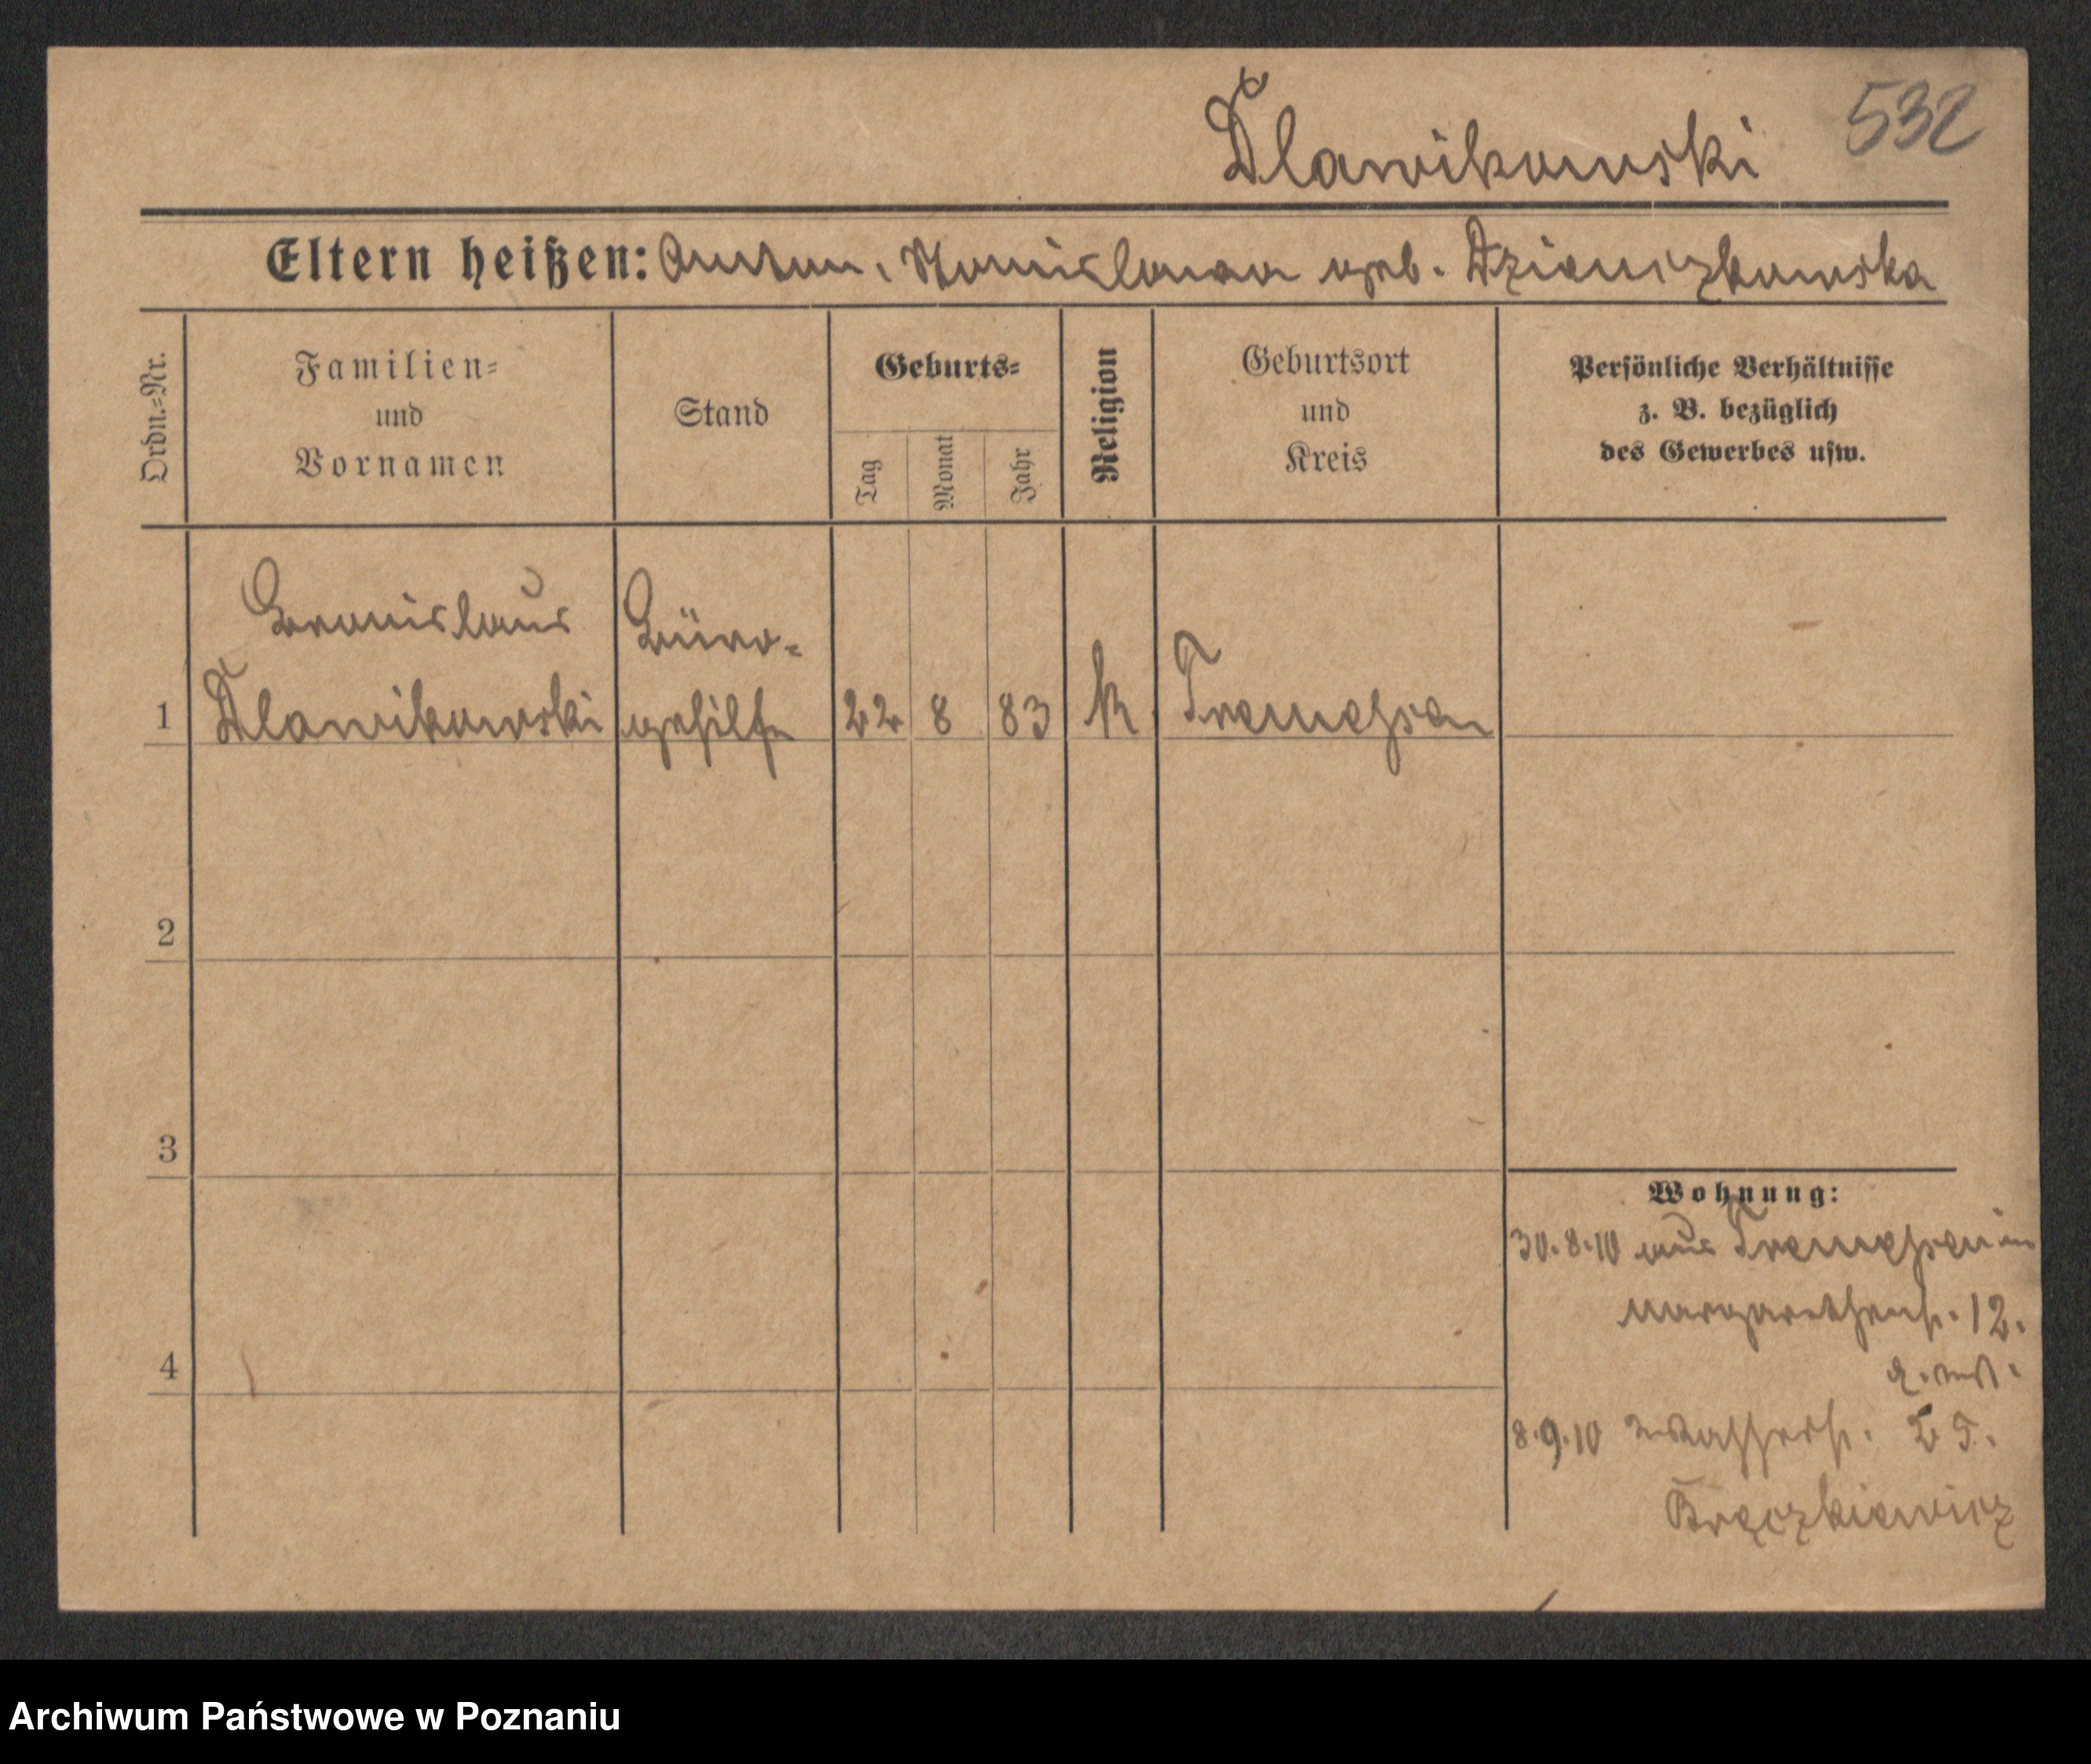 532
Dlawikowski
Eltern heißen: Anton, Stanislawa geb. Dzionczkowska
Ordn.=Nr.
Familien=
und
Vornamen
Stand
Geburts=
Tag
Monat
Jahr
Religion
Geburtsort
und
Kreis
Persönliche Verhältnisse
z. B. bezüglich
des Gewerbes usw.
Bronislaus Büro-
1 Dlawikowski gehilfe 22 8 83 K Tremessen
2
3
4
Wohnung:
30.8.10 aus Tremessen in
Margarethenstr. 12.
8.9.10 Wasserstr. 25.
Bręczkiewicz
Archiwum Państwowe w Poznaniu